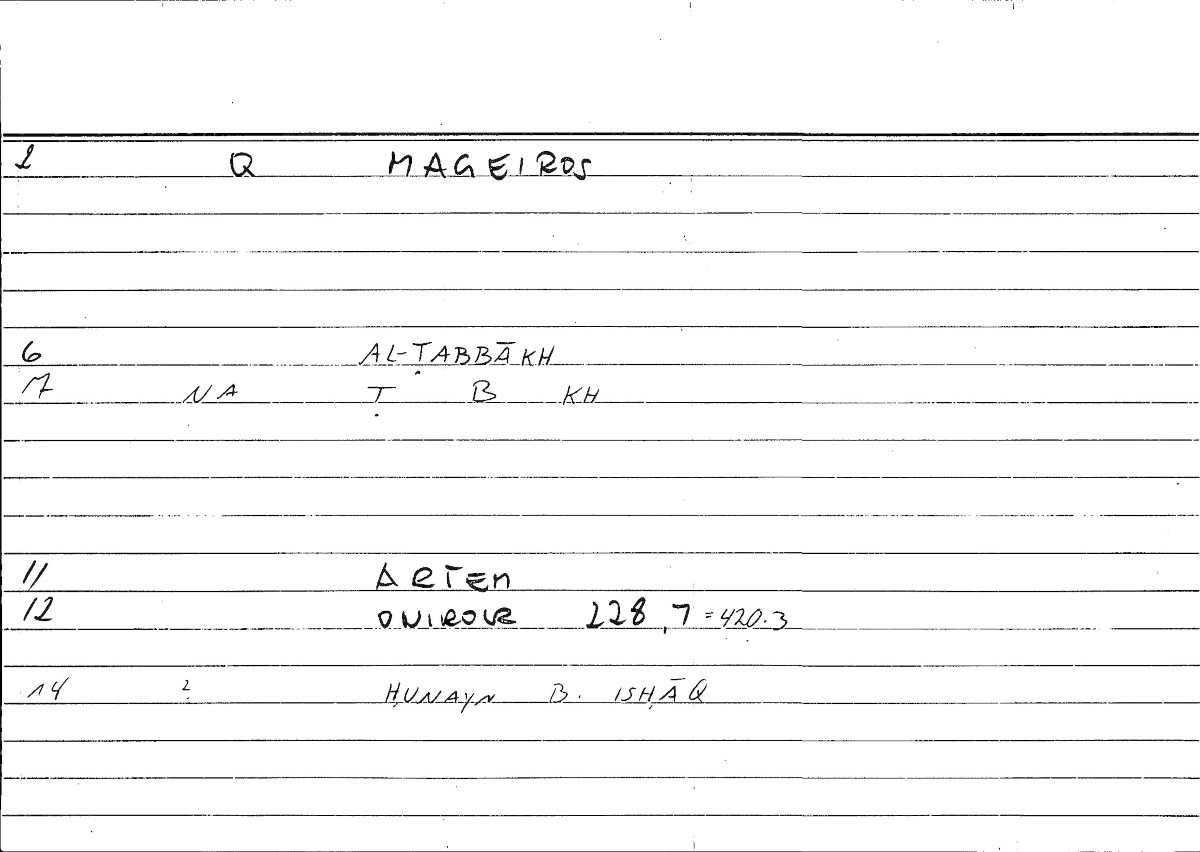 2 Q MAGEIROS
6 AL-ṬABBĀKH
7 NA Ṭ B KH
11 ARTEM
12 ONIROCR 228,7 = 420.3
14 ? ḤUNAYN B. ISḤĀQ